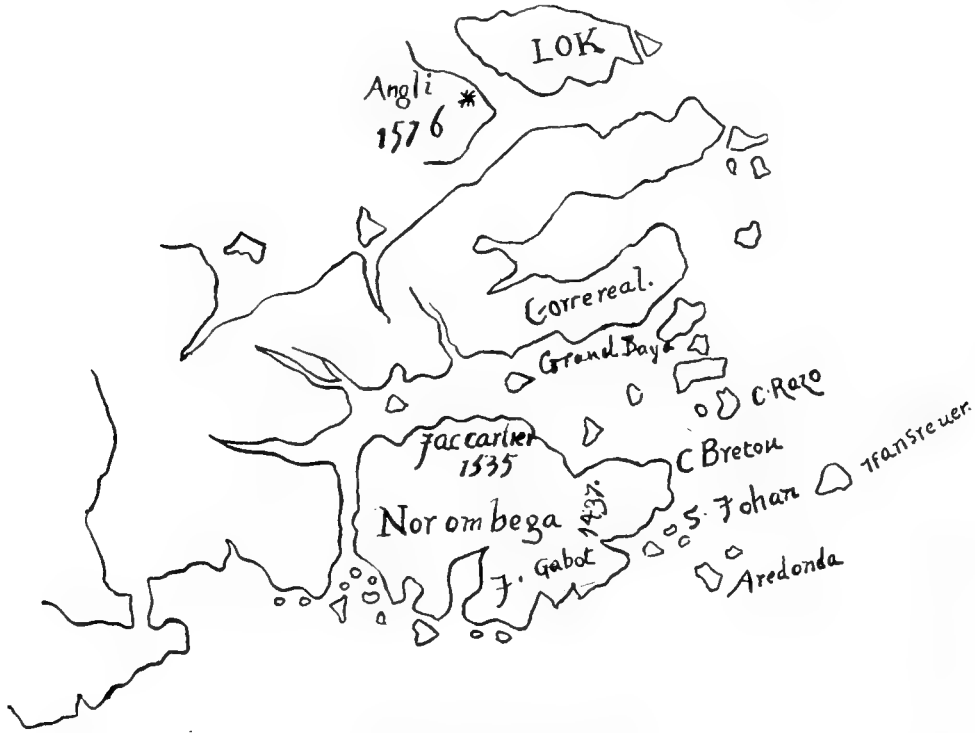 LOK
Angli
1576
Correreal.
Grand Baya
C. Razo
Jac cartier
1535
C Breton
Norombega
1437.
S. Johan
J. Gabot
Aredonda